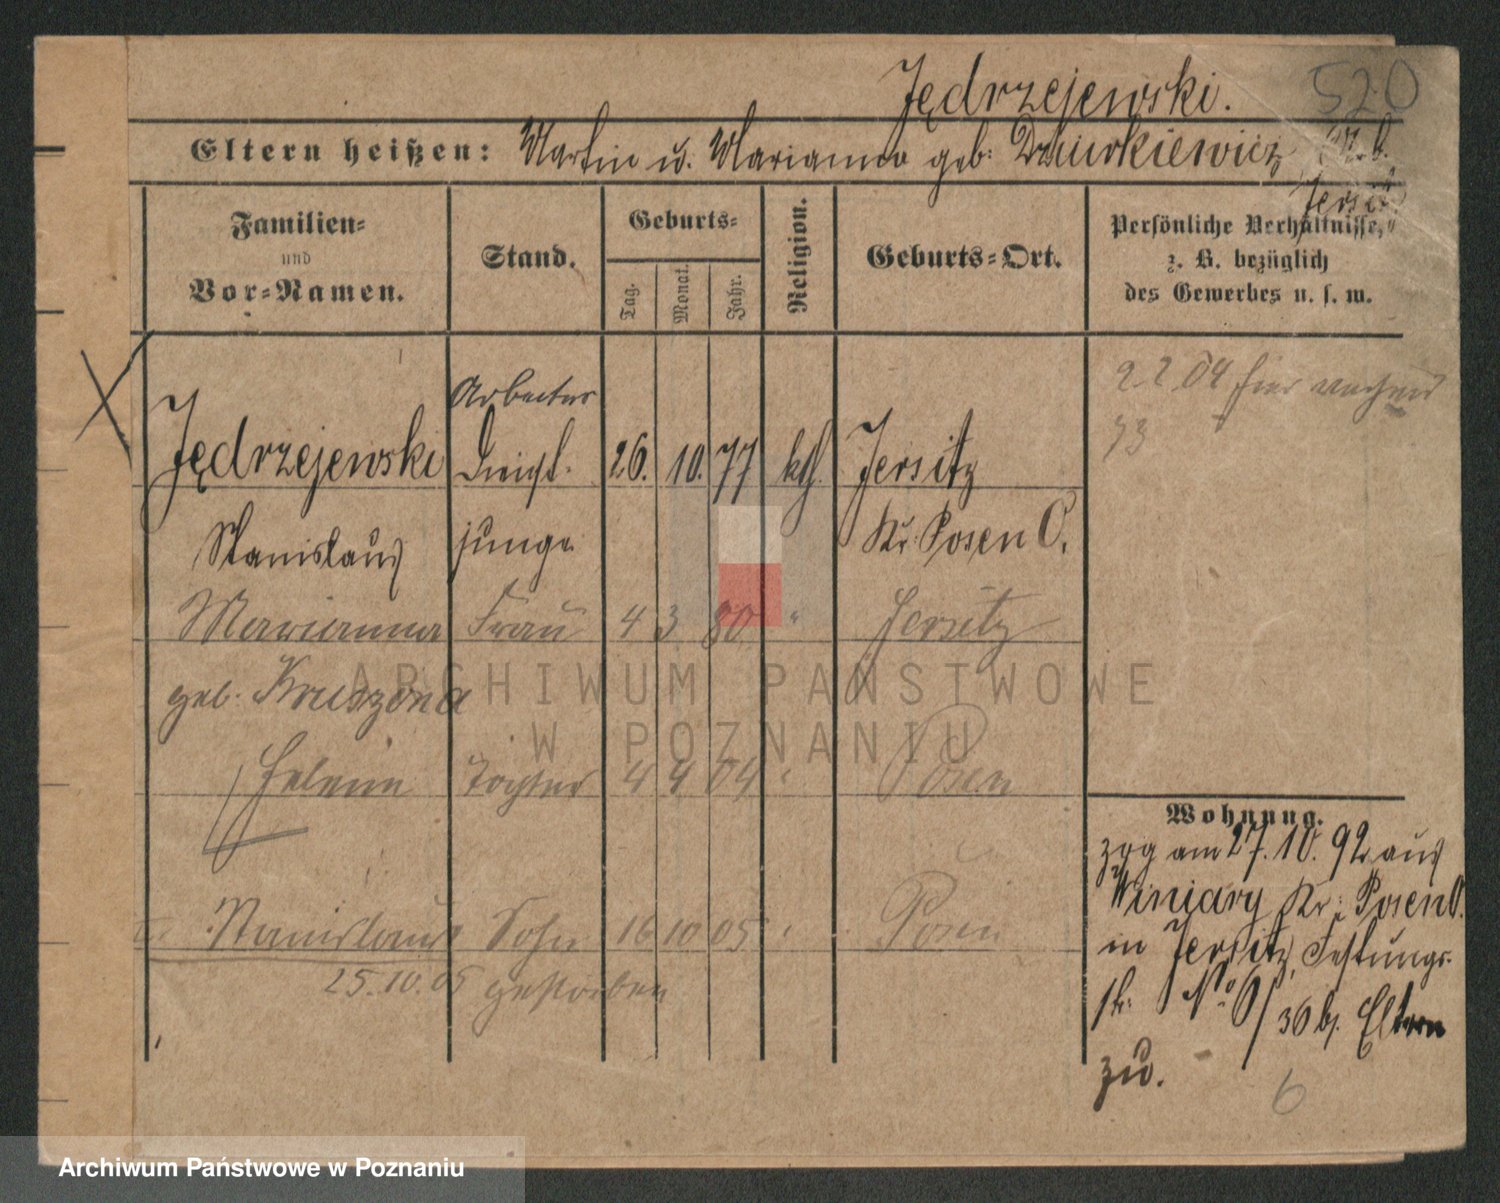 Jędrzejewski.
520
Eltern heißen: Martin u. Marianna geb: Dziurkiewicz
Jersitz
Familien-
und
Vor-Namen.
Stand.
Geburts-
Tag.
Monat.
Jahr.
Religion.
Geburts-Ort.
Persönliche Verhältnisse,
z. B. bezüglich
des Gewerbes u. s. w.
2 2 04 hier
73
Arbeiter
Jędrzejewski 26. 10. 77 kth. Jersitz
Stanislaus junge Kr: Posen O.
Marianna Frau 4 3 80 " Jersitz
geb. Kruszona
Helene Tochter 4 4 04 " Posen
Stanislaus Sohn 16 10 05 " Posen
25.10.05 gestorben
Wohnung.
zog am 27.10.92 aus
Winiary Kr: Posen O.
in Jersitz, Festungs-
str: No 6/36 b. Eltern
zu.
6
ARCHIWUM PAŃSTWOWE
W POZNANIU
Archiwum Państwowe w Poznaniu